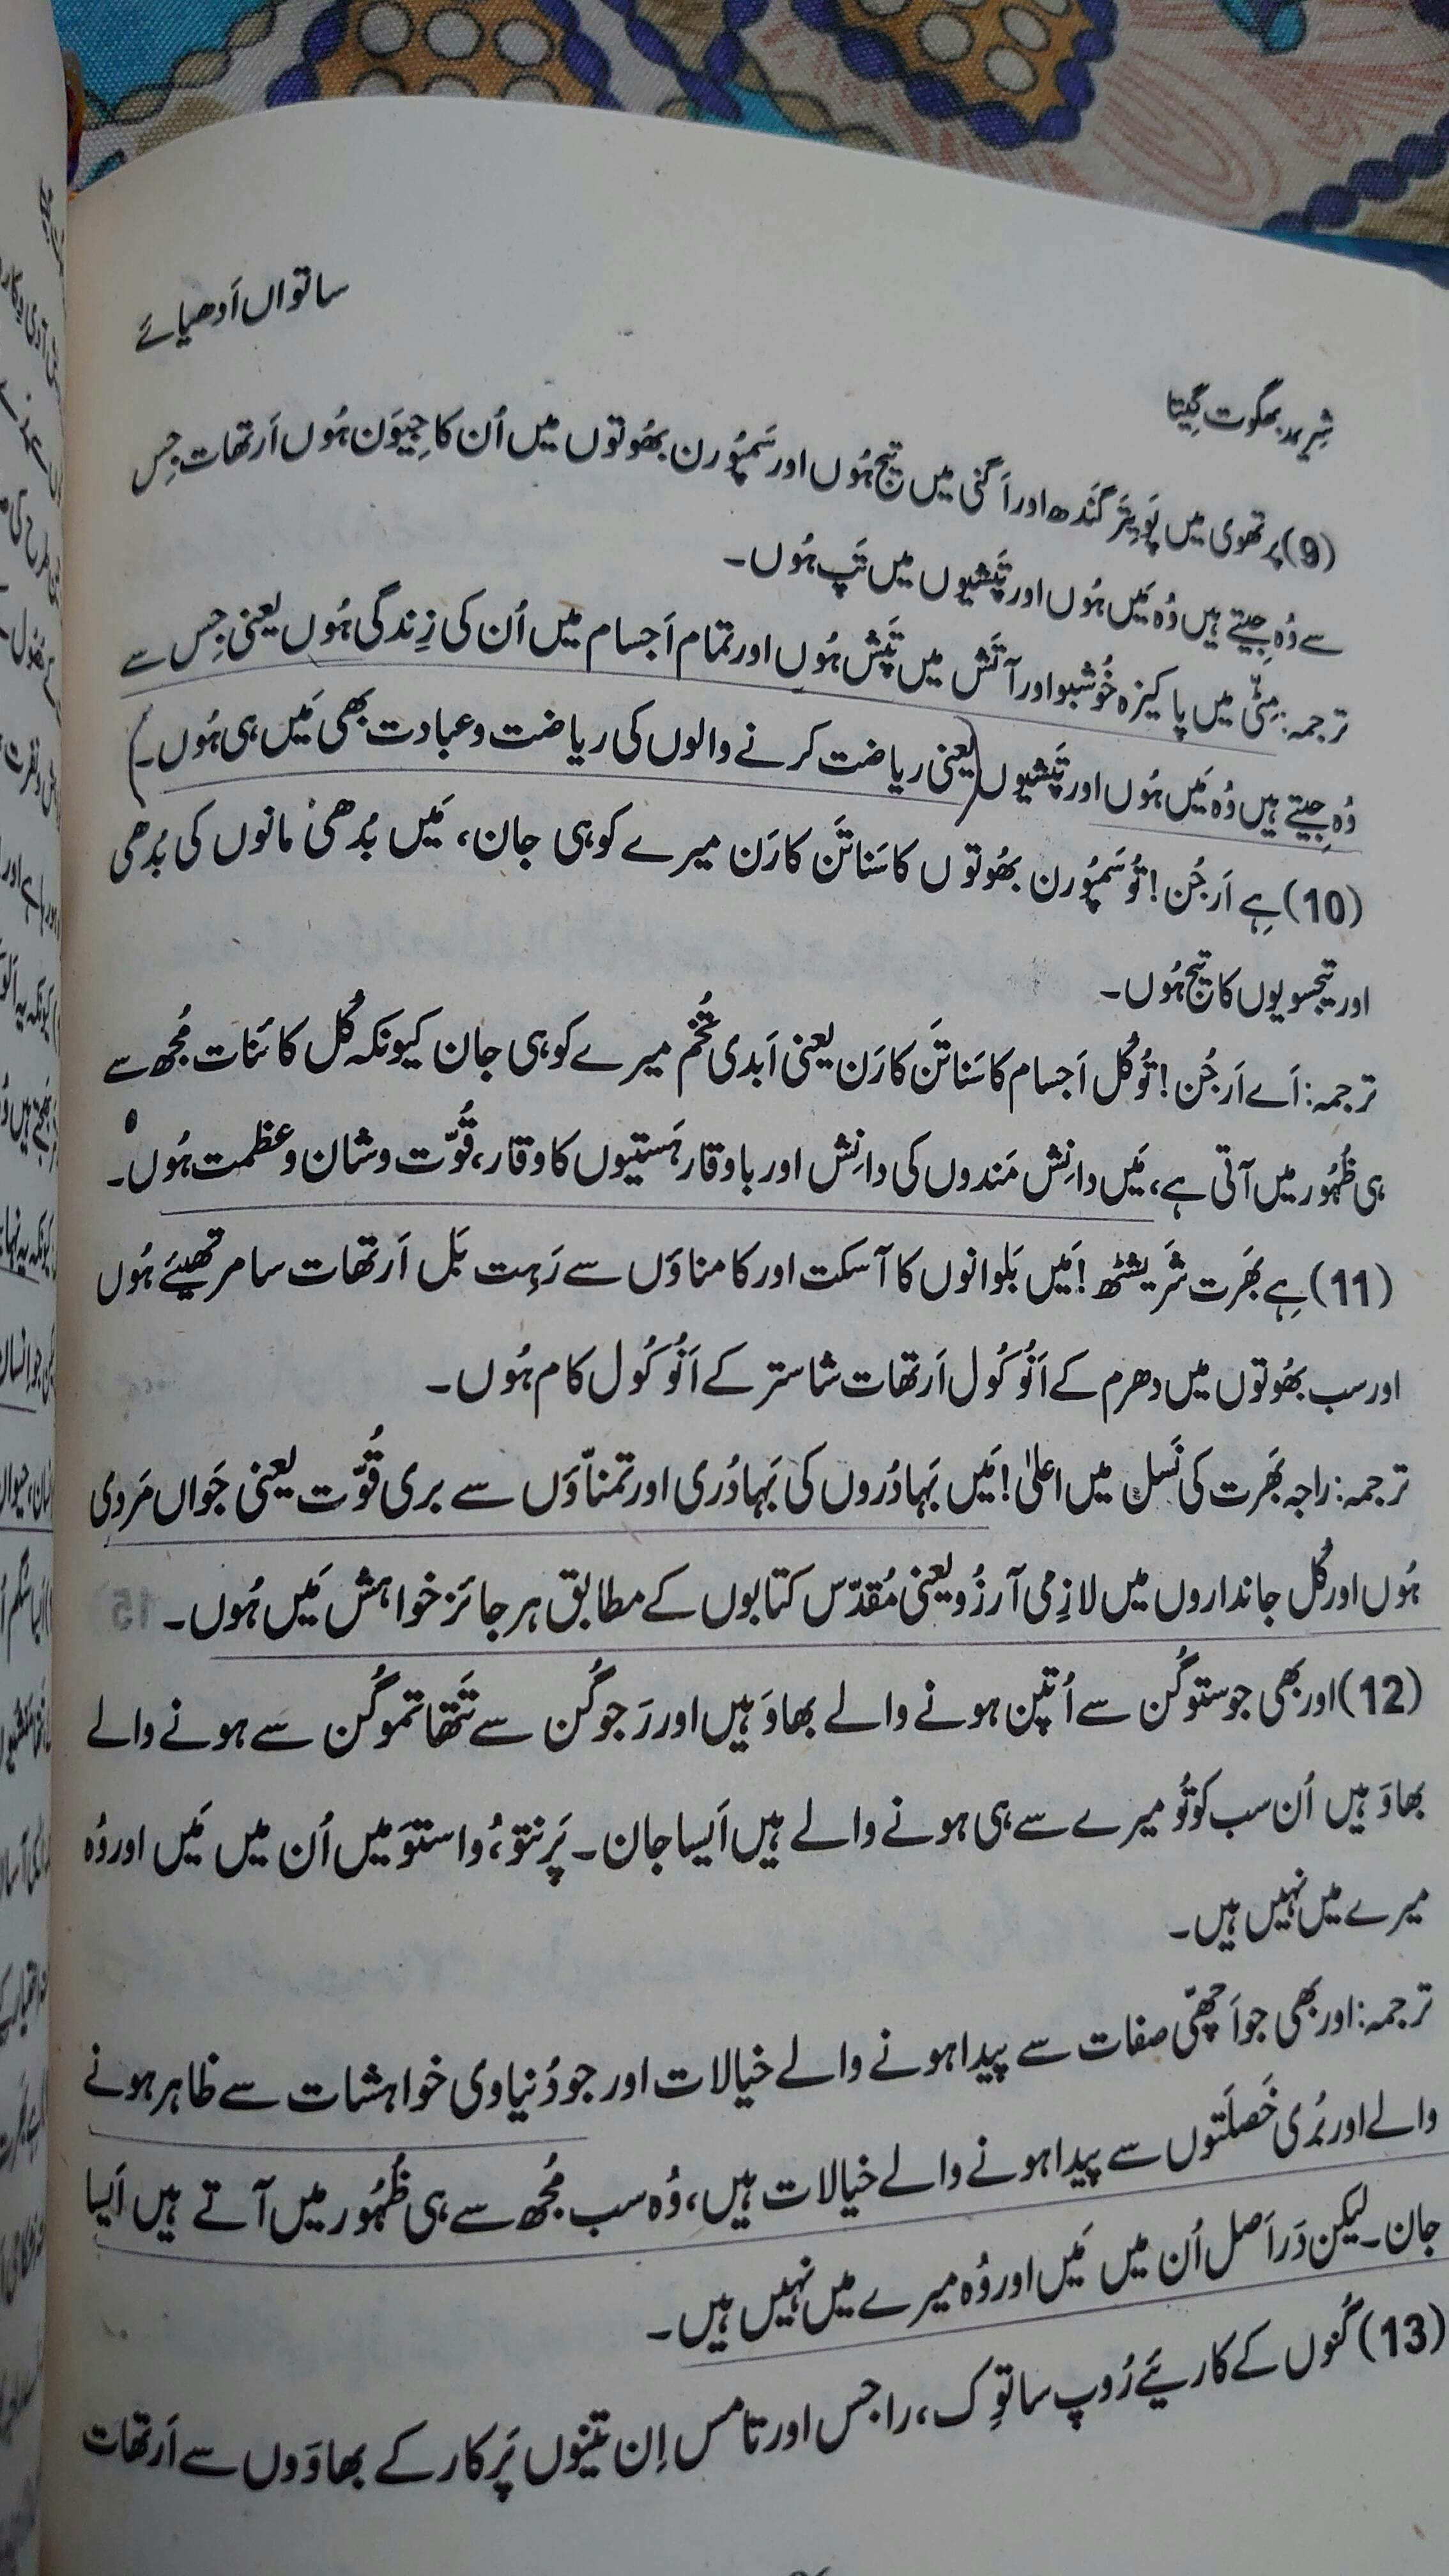 ساتواں اَدھیائے
شِریمد بھگوت گِیتا
(9) پرتھوی میں پَوِیتر گَندھ اور اَگنی میں تیج ہُوں اور سَمپُورن بھُوتوں میں اُن کا جِیوَن ہُوں اَرتھات جِس
سے وُہ جِیتے ہیں وُہ مَیں ہُوں اور تَپَشیوں میں تَپ ہُوں۔
ترجمہ: مِٹّی میں پاکیزہ خُوشبو اور آتش میں تَپَش ہُوں اور تمام اَجسام میں اُن کی زِندگی ہُوں یعنی جِس سے
وُہ جِیتے ہیں وُہ مَیں ہُوں اور تَپَشیوں (یعنی ریاضت کرنے والوں کی ریاضت و عبادت بھی مَیں ہی ہُوں۔)
(10) ہِے اَرجُن! تُو سَمپُورن بھُوتوں کا سَناتَن کارَن میرے کو ہی جان، مَیں بُدھی مانوں کی بُدھی
اور تیجسویوں کا تیج ہُوں۔
ترجمہ: اَے اَرجُن! تُو کُل اَجسام کا سَناتَن کارَن یعنی اَبدی تُخم میرے کو ہی جان کیونکہ کُل کائنات مُجھ سے
ہی ظُہُور میں آتی ہے، مَیں دانِش مَندوں کی دانِش اور باوقار ہَستیوں کا وقار، قُوّت و شان و عظمت ہُوں۔
(11) ہِے بَھرت شریشٹھ! مَیں بَلوانوں کا آسکت اور کامناؤں سے رَہِت بَل اَرتھات سامرتھیئے ہُوں
اور سب بھُوتوں میں دھرم کے اَنُوکُول اَرتھات شاستر کے اَنُوکُول کام ہُوں۔
ترجمہ: راجہ بَھرت کی نَسل میں اعلیٰ! مَیں بَہادُروں کی بَہادُری اور تمنّاؤں سے بری قُوّت یعنی جَواں مَردی
ہُوں اور کُل جانداروں میں لازِمی آرزُو یعنی مُقدّس کتابوں کے مطابق ہر جائز خواہش مَیں ہُوں۔
(12) اور بھی جو ستوگُن سے اُتپن ہونے والے بھاوَ ہیں اور رَجوگُن سے تَتھا تموگُن سے ہونے والے
بھاوَ ہیں اُن سب کو تُو میرے سے ہی ہونے والے ہیں اَیسا جان۔ پَرنتو، واستوَ میں اُن میں مَیں اور وُہ
میرے میں نہیں ہیں۔
ترجمہ: اور بھی جو اَچھّی صفات سے پیدا ہونے والے خیالات اور جو دُنیاوی خواہشات سے ظاہر ہونے
والے اور بُری خَصلَتوں سے پیدا ہونے والے خیالات ہیں، وُہ سب مُجھ سے ہی ظُہُور میں آتے ہیں اَیسا
جان۔ لیکن دَراَصل اُن میں مَیں اور وُہ میرے میں نہیں ہیں۔
(13) گُنوں کے کاریئے رُوپ ساتوِک، راجس اور تامس اِن تینوں پَرکار کے بھاوَوں سے اَرتھات